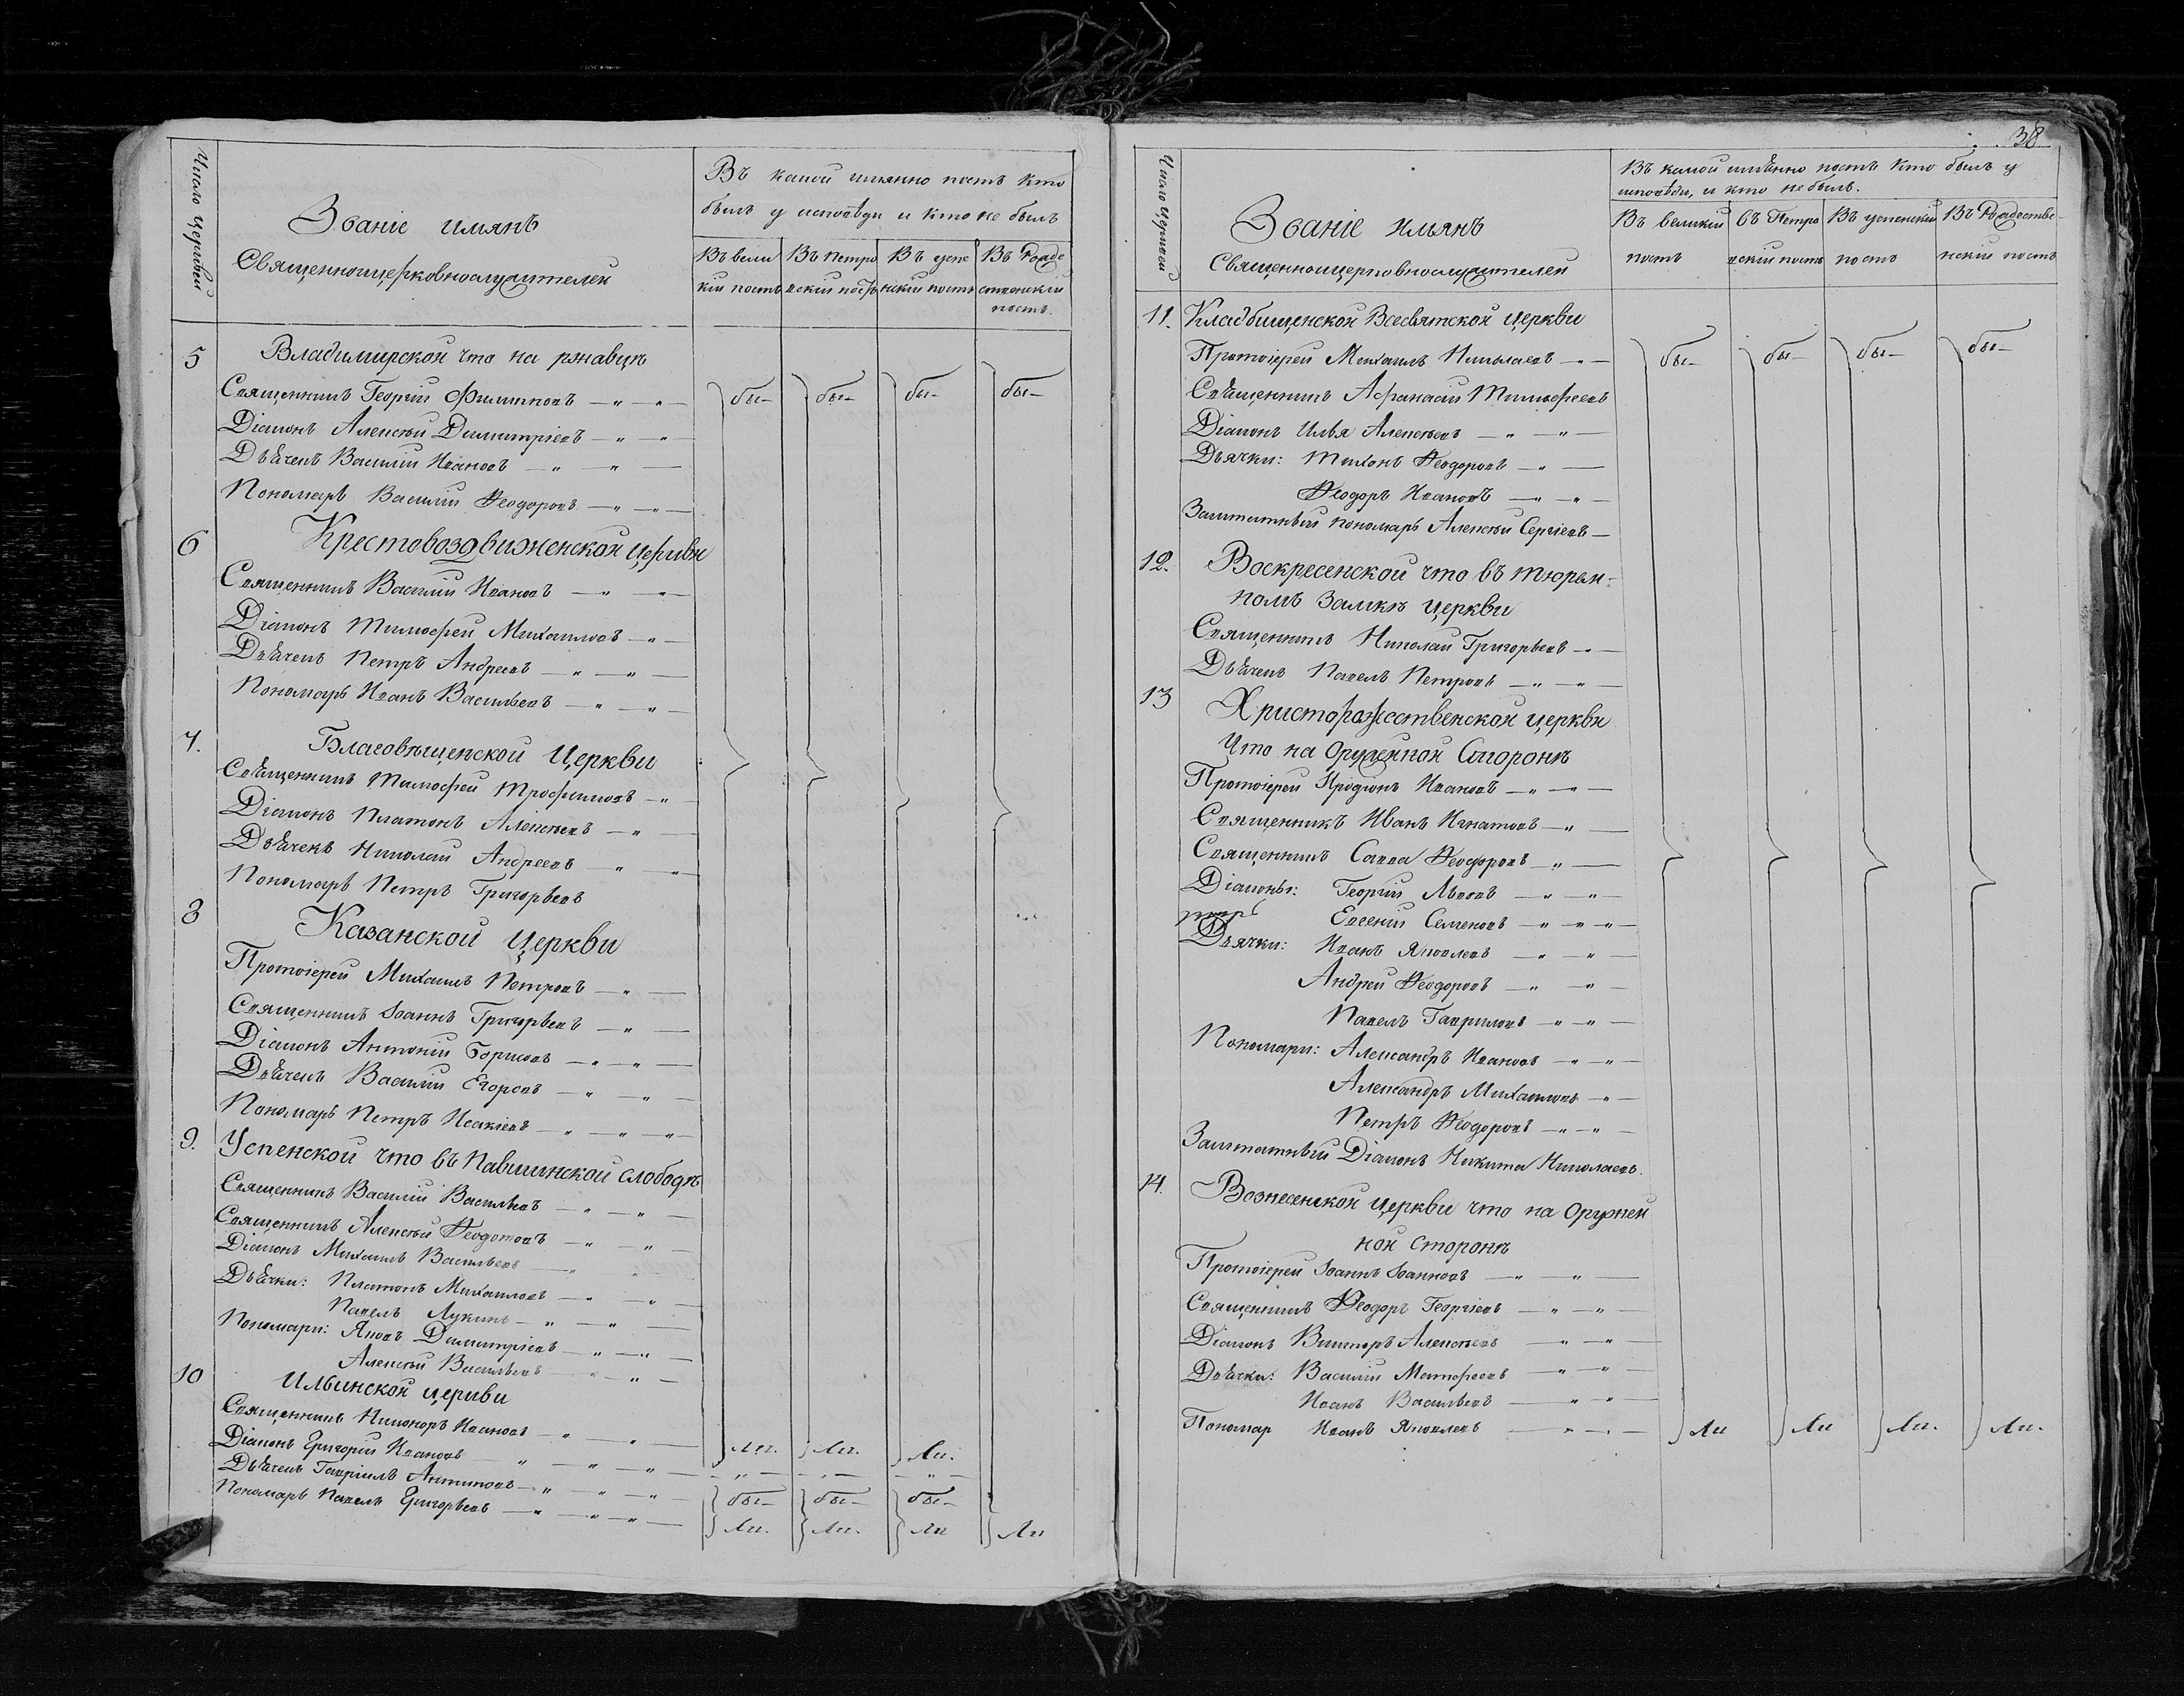 Число церквей
Званіе имянъ
Священноцерковнослужителей
Въ какой имянно постъ кто
былъ у исповѣди и кто не былъ
Въ вели
кій постъ
Въ петро
вскій постъ
Въ успе
нскій постъ
Въ Рожде
ственскій
постъ.
5 Владимирской что на ржавцѣ
Священникъ Георгій Филиповъ бы бы бы бы
Діаконъ Алексѣй Димитріевъ
Дьячекъ Василій Ивановъ
Пономарь Василій Ѳеодоровъ
6 Крестовоздвиженской церкви
Священникъ Василій Ивановъ
Діаконъ Тимоѳей Михаиловъ
Дьячекъ Петръ Андреевъ
Пономарь Иванъ Васильевъ
7. Благовѣщенской Церкви
Священникъ Тимоѳей Трофимовъ
Діаконъ Платонъ Алексѣевъ
Дьячекъ Николай Андреевъ
Пономарь Петръ Григорьевъ
8 Казанской Церкви
Протоіерей Михаилъ Петровъ
Священникъ Іоаннъ Григорьевъ
Діаконъ Антоній Борисовъ
Дьячекъ Василій Егоровъ
Пономарь Петръ Исакіевъ
9. Успенской что въ Павшинской слободѣ
Священникъ Василій Васильевъ
Священникъ Алексѣй Ѳеодотовъ
Діаконъ Михаилъ Васильевъ
Дьячки: Платонъ Михаиловъ
Павелъ Лукинъ
Пономари: Яковъ Димитріевъ
Алексѣй Васильевъ
10 Ильинской церкви
Священникъ Никоноръ Ивановъ
Діаконъ Григорій Ивановъ ли. ли. ли.
Дьячекъ Гавріилъ Антиповъ
Пономарь Павелъ Григорьевъ бы бы бы
ли. ли. ли ли
38
Число Церквей
Званіе имянъ
Священноцерковнослужителей
Въ какой имѣнно постъ кто былъ у
исповѣди, и кто не былъ.
Въ великій
постъ
въ Петро
вскій постъ
Въ успенскій
постъ
Въ Рождестве-
нскій постъ
11. Кладбищенской Всесвятской Церкви
Протоіерей Михаилъ Николаевъ бы бы бы бы
Священникъ Афанасій Тимоѳеевъ
Діаконъ Илья Алексѣевъ
Дьячки: Тихонъ Ѳеодоровъ
Ѳеодоръ Ивановъ
Заштатный пономарь Алексѣй Сергіевъ
12. Воскресенской что въ тюрем-
номъ замкѣ церкви
Священникъ Николай Григорьевъ
Дьячекъ Павелъ Петровъ
13 Христорождественской церкви
Что на Оружейной Сторонѣ
Протоіерей Иродіонъ Ивановъ
Священникъ Иванъ Игнатовъ
Священникъ Савва Ѳеодоровъ
Діаконы: Георгій Львовъ
Евсеній Семеновъ
Дьячки: Иванъ Яковлевъ
Андрей Ѳеодоровъ
Павелъ Гавриловъ
Пономари: Александръ Ивановъ
Александръ Михаиловъ
Петръ Ѳеодоровъ
Заштатный Діаконъ Никита Николаевъ.
14. Вознесенской церкви что на Оружей
ной Сторонѣ
Протоіерей Іоаннъ Іоанновъ
Священникъ Ѳеодоръ Георгіевъ
Діаконъ Викторъ Алексѣевъ
Дьячки: Василій Матѳеевъ
Иванъ Васильевъ
Пономар Иванъ Яковлевъ ли ли ли. ли.